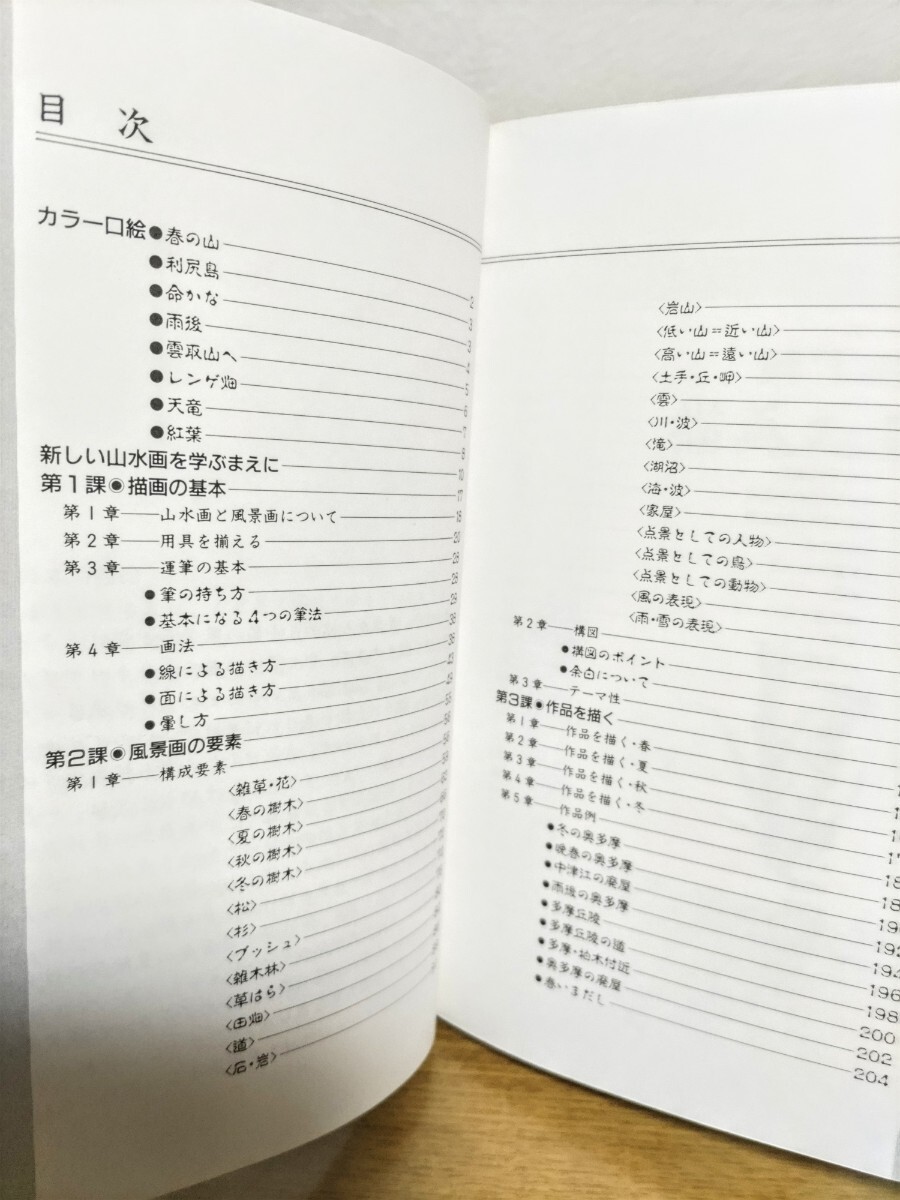 目次
カラー口絵●春の山 2
●利尻島 3
●命かな 3
●雨後 4
●雲取山へ 5
●レンゲ畑 6
●天竜 7
●紅葉 8
新しい山水画を学ぶまえに 10
第1課◉描画の基本 17
第1章——山水画と風景画について 18
第2章——用具を揃える 20
第3章——運筆の基本 28
●筆の持ち方 28
●基本になる4つの筆法 29
第4章——画法
●線による描き方
●面による描き方
●暈し方
第2課◉風景画の要素
第1章——構成要素
〈雑草・花〉
〈春の樹木〉
〈夏の樹木〉
〈秋の樹木〉
〈冬の樹木〉
〈松〉
〈杉〉
〈ブッシュ〉
〈雑木林〉
〈草はら〉
〈田畑〉
〈道〉
〈石・岩〉
〈岩山〉
〈低い山＝近い山〉
〈高い山＝遠い山〉
〈土手・丘・岬〉
〈雲〉
〈川・波〉
〈滝〉
〈湖沼〉
〈海・波〉
〈家屋〉
〈点景としての人物〉
〈点景としての鳥〉
〈点景としての動物〉
〈風の表現〉
〈雨・雪の表現〉
第2章——構図
●構図のポイント
●余白について
第3章——テーマ性
第3課◉作品を描く
第1章——作品を描く・春
第2章——作品を描く・夏
第3章——作品を描く・秋
第4章——作品を描く・冬
第5章——作品例
●冬の奥多摩
●晩春の奥多摩
●中津江の廃屋
●雨後の奥多摩
●多摩丘陵 194
●多摩丘陵の道 196
●多摩・柏木付近 198
●奥多摩の廃屋 200
●春いまだし 204